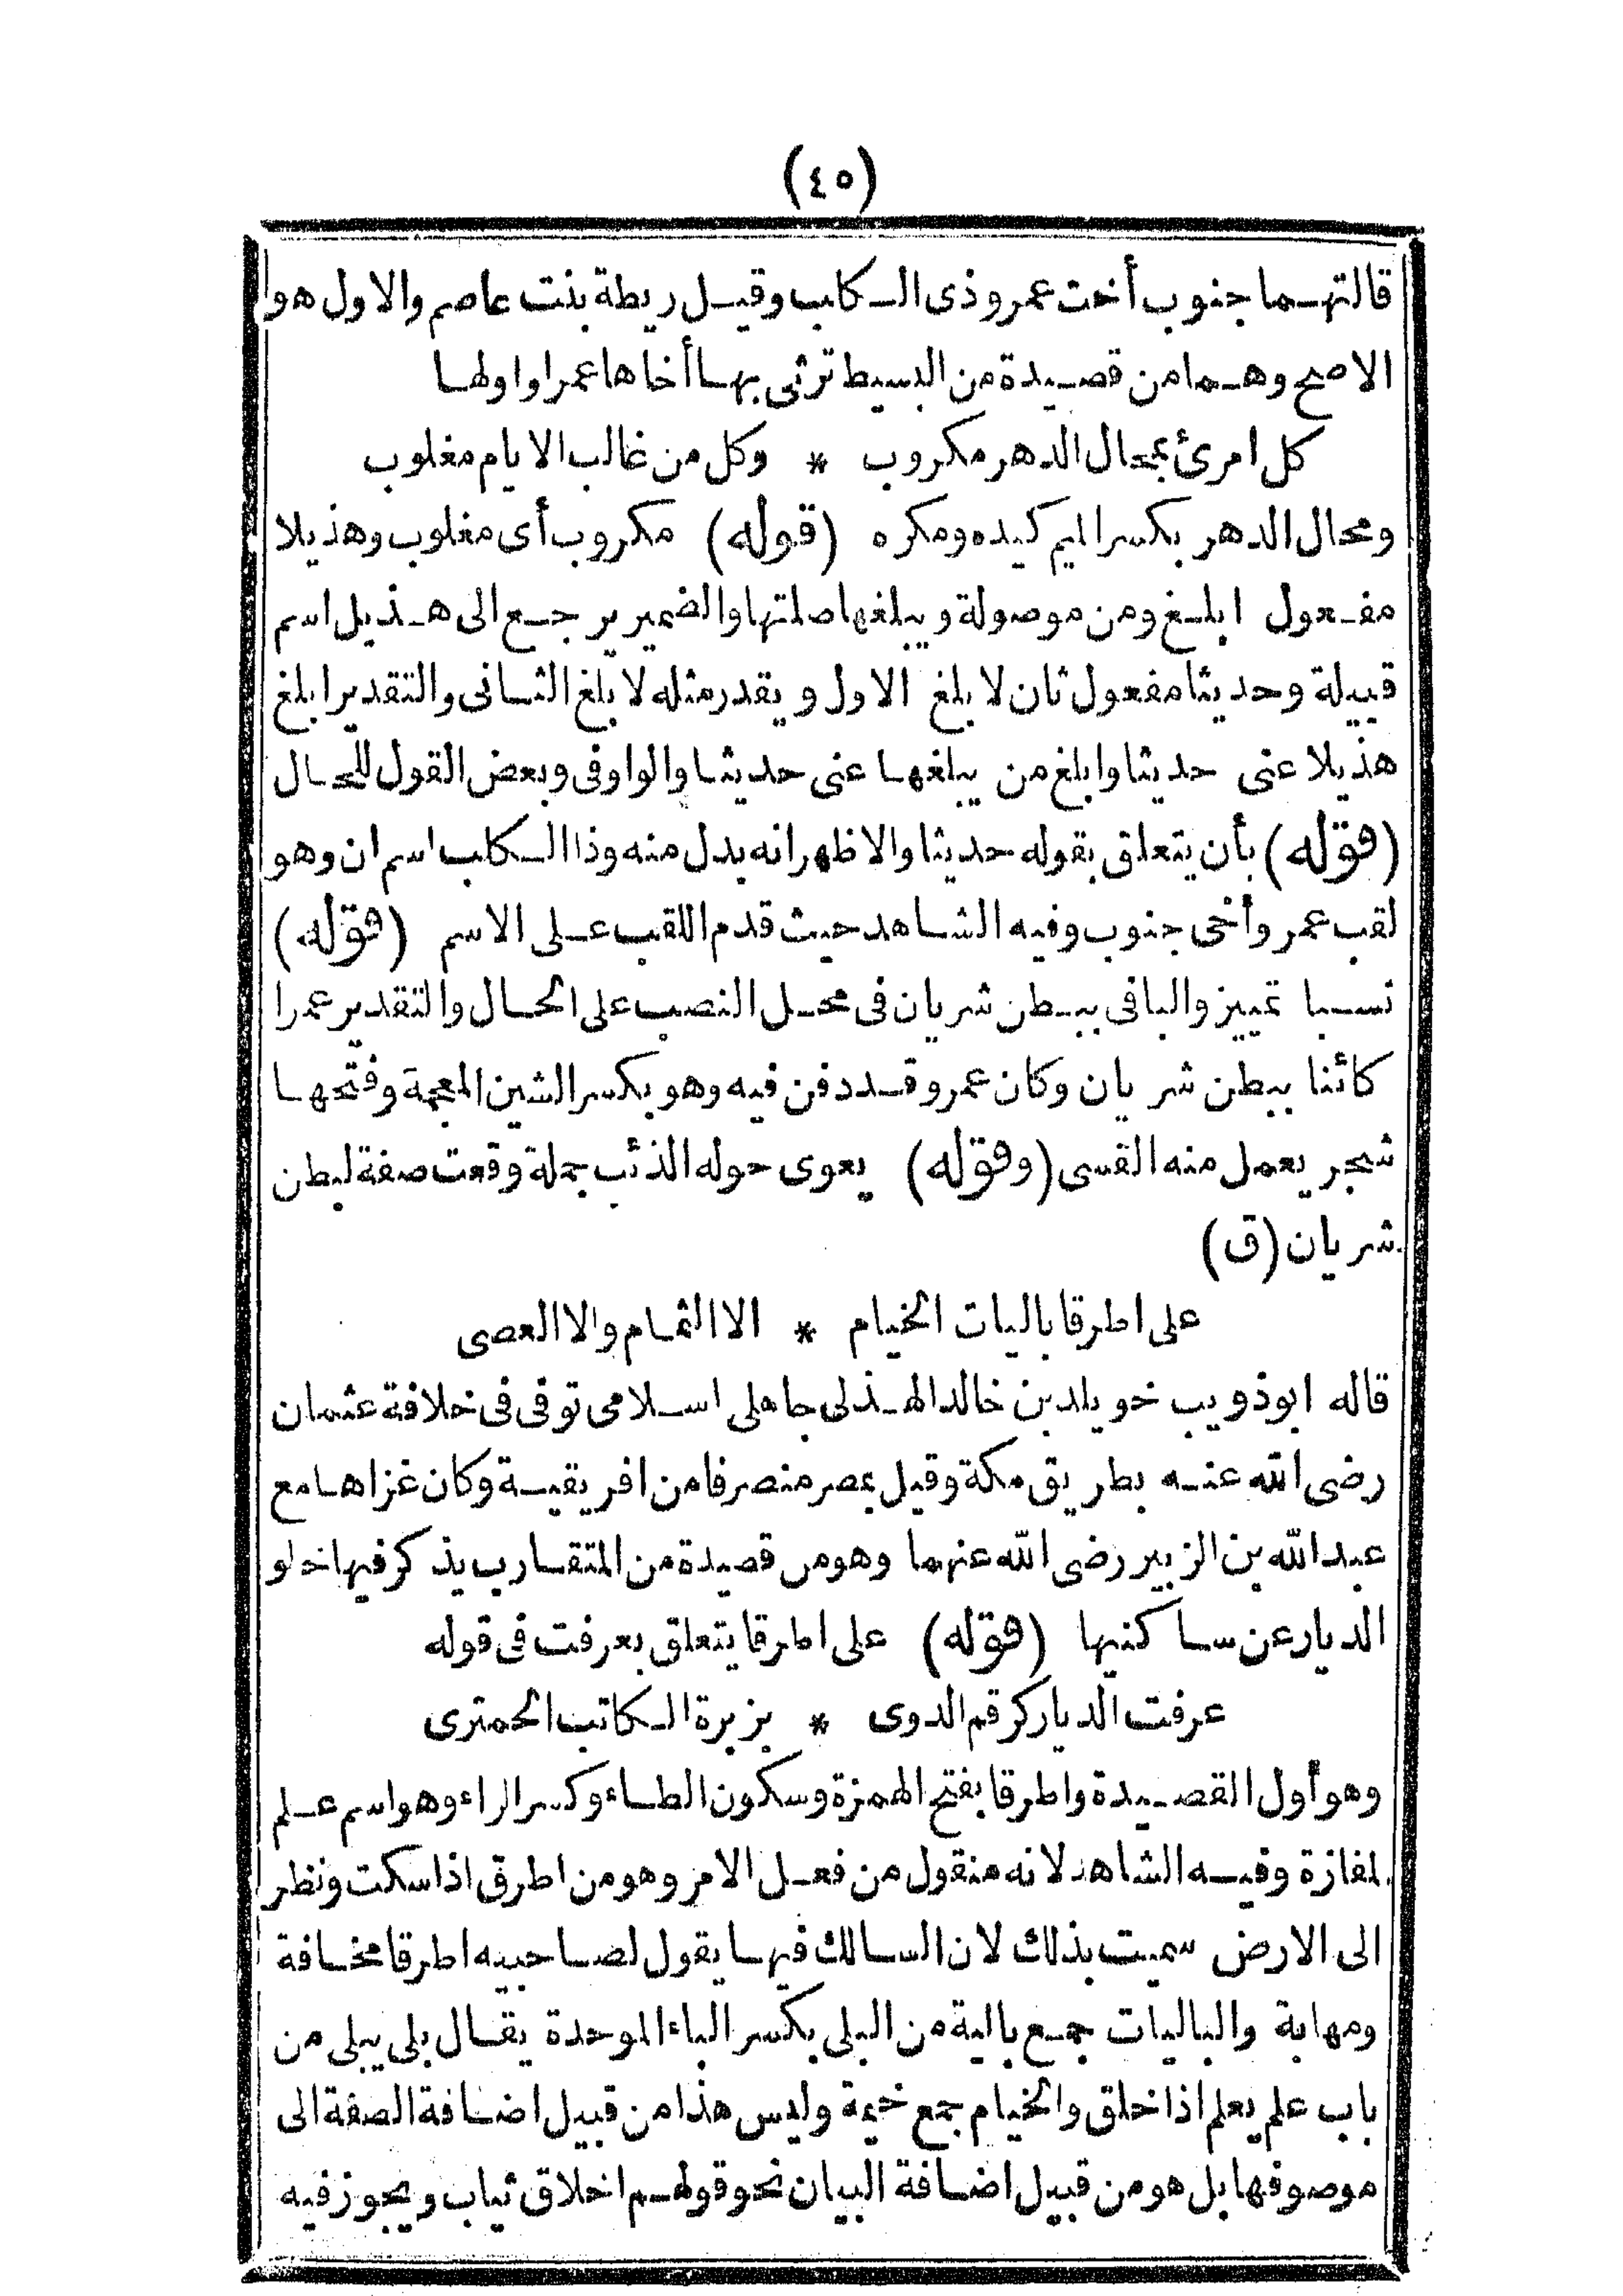 (٤٥)
قالتهما جنوب أخت عمرو ذى الكلب وقيل ريطة بنت عاصم والاول هو
الاصح وهما من قصيدة من البسيط ترثى بها أخاها عمرا واولها
كل امرئ بمحال الدهر مكروب * وكل من غالب الايام مغلوب
ومحال الدهر بكسر الميم كيده ومكره (قوله) مكروب أى مغلوب وهذيلا
مفعول ابلغ ومن موصولة ويبلغها صلتها والضمير يرجع الى هذيل اسم
قبيلة وحديثا مفعول ثان لابلغ الاول ويقدر مثله لابلغ الثانى والتقدير ابلغ
هذيلا عنى حديثا وابلغ من يبلغها عنى حديثا والواو فى وبعض القول للحال
(قوله) بأن يتعلق بقوله حديثا والاظهر انه بدل منه وذا الكلب اسم ان وهو
لقب عمرو أخى جنوب وفيه الشاهد حيث قدم اللقب على الاسم (قوله)
نسبا تمييز والباء فى ببطن شريان فى محل النصب على الحال والتقدير عمرا
كائنا ببطن شريان وكان عمرو قد دفن فيه وهو بكسر الشين المعجمة وفتحها
شجر يعمل منه القسى (وقوله) يعوى حوله الذئب جملة وقعت صفة لبطن
شريان (ق)
على اطرقا باليات الخيام * الا الثمام والا العصى
قاله ابو ذويب خويلد بن خالد الهذلى جاهلى اسلامى توفى فى خلافة عثمان
رضى الله عنه بطريق مكة وقيل بمصر منصرفا من افريقية وكان غزاها مع
عبد الله بن الزبير رضى الله عنهما وهو من قصيدة من المتقارب يذكر فيها خلو
الديار عن ساكنيها (قوله) على اطرقا يتعلق بعرفت فى قوله
عرفت الديار كرقم الدوى * يزبرة الكاتب الحمترى
وهو أول القصيدة واطرقا بفتح الهمزة وسكون الطاء وكسر الراء وهو اسم علم
لمفازة وفيه الشاهد لانه منقول من فعل الامر وهو من اطرق اذا سكت ونظر
الى الارض سميت بذلك لان السالك فيها يقول لصاحبيه اطرقا مخافة
ومهابة والباليات جمع بالية من البلى بكسر الباء الموحدة يقال بلى يبلى من
باب علم يعلم اذا خلق والخيام جمع خيمة وليس هذا من قبيل اضافة الصفة الى
موصوفها بل هو من قبيل اضافة البيان نحو قولهم اخلاق ثياب ويجوز فيه